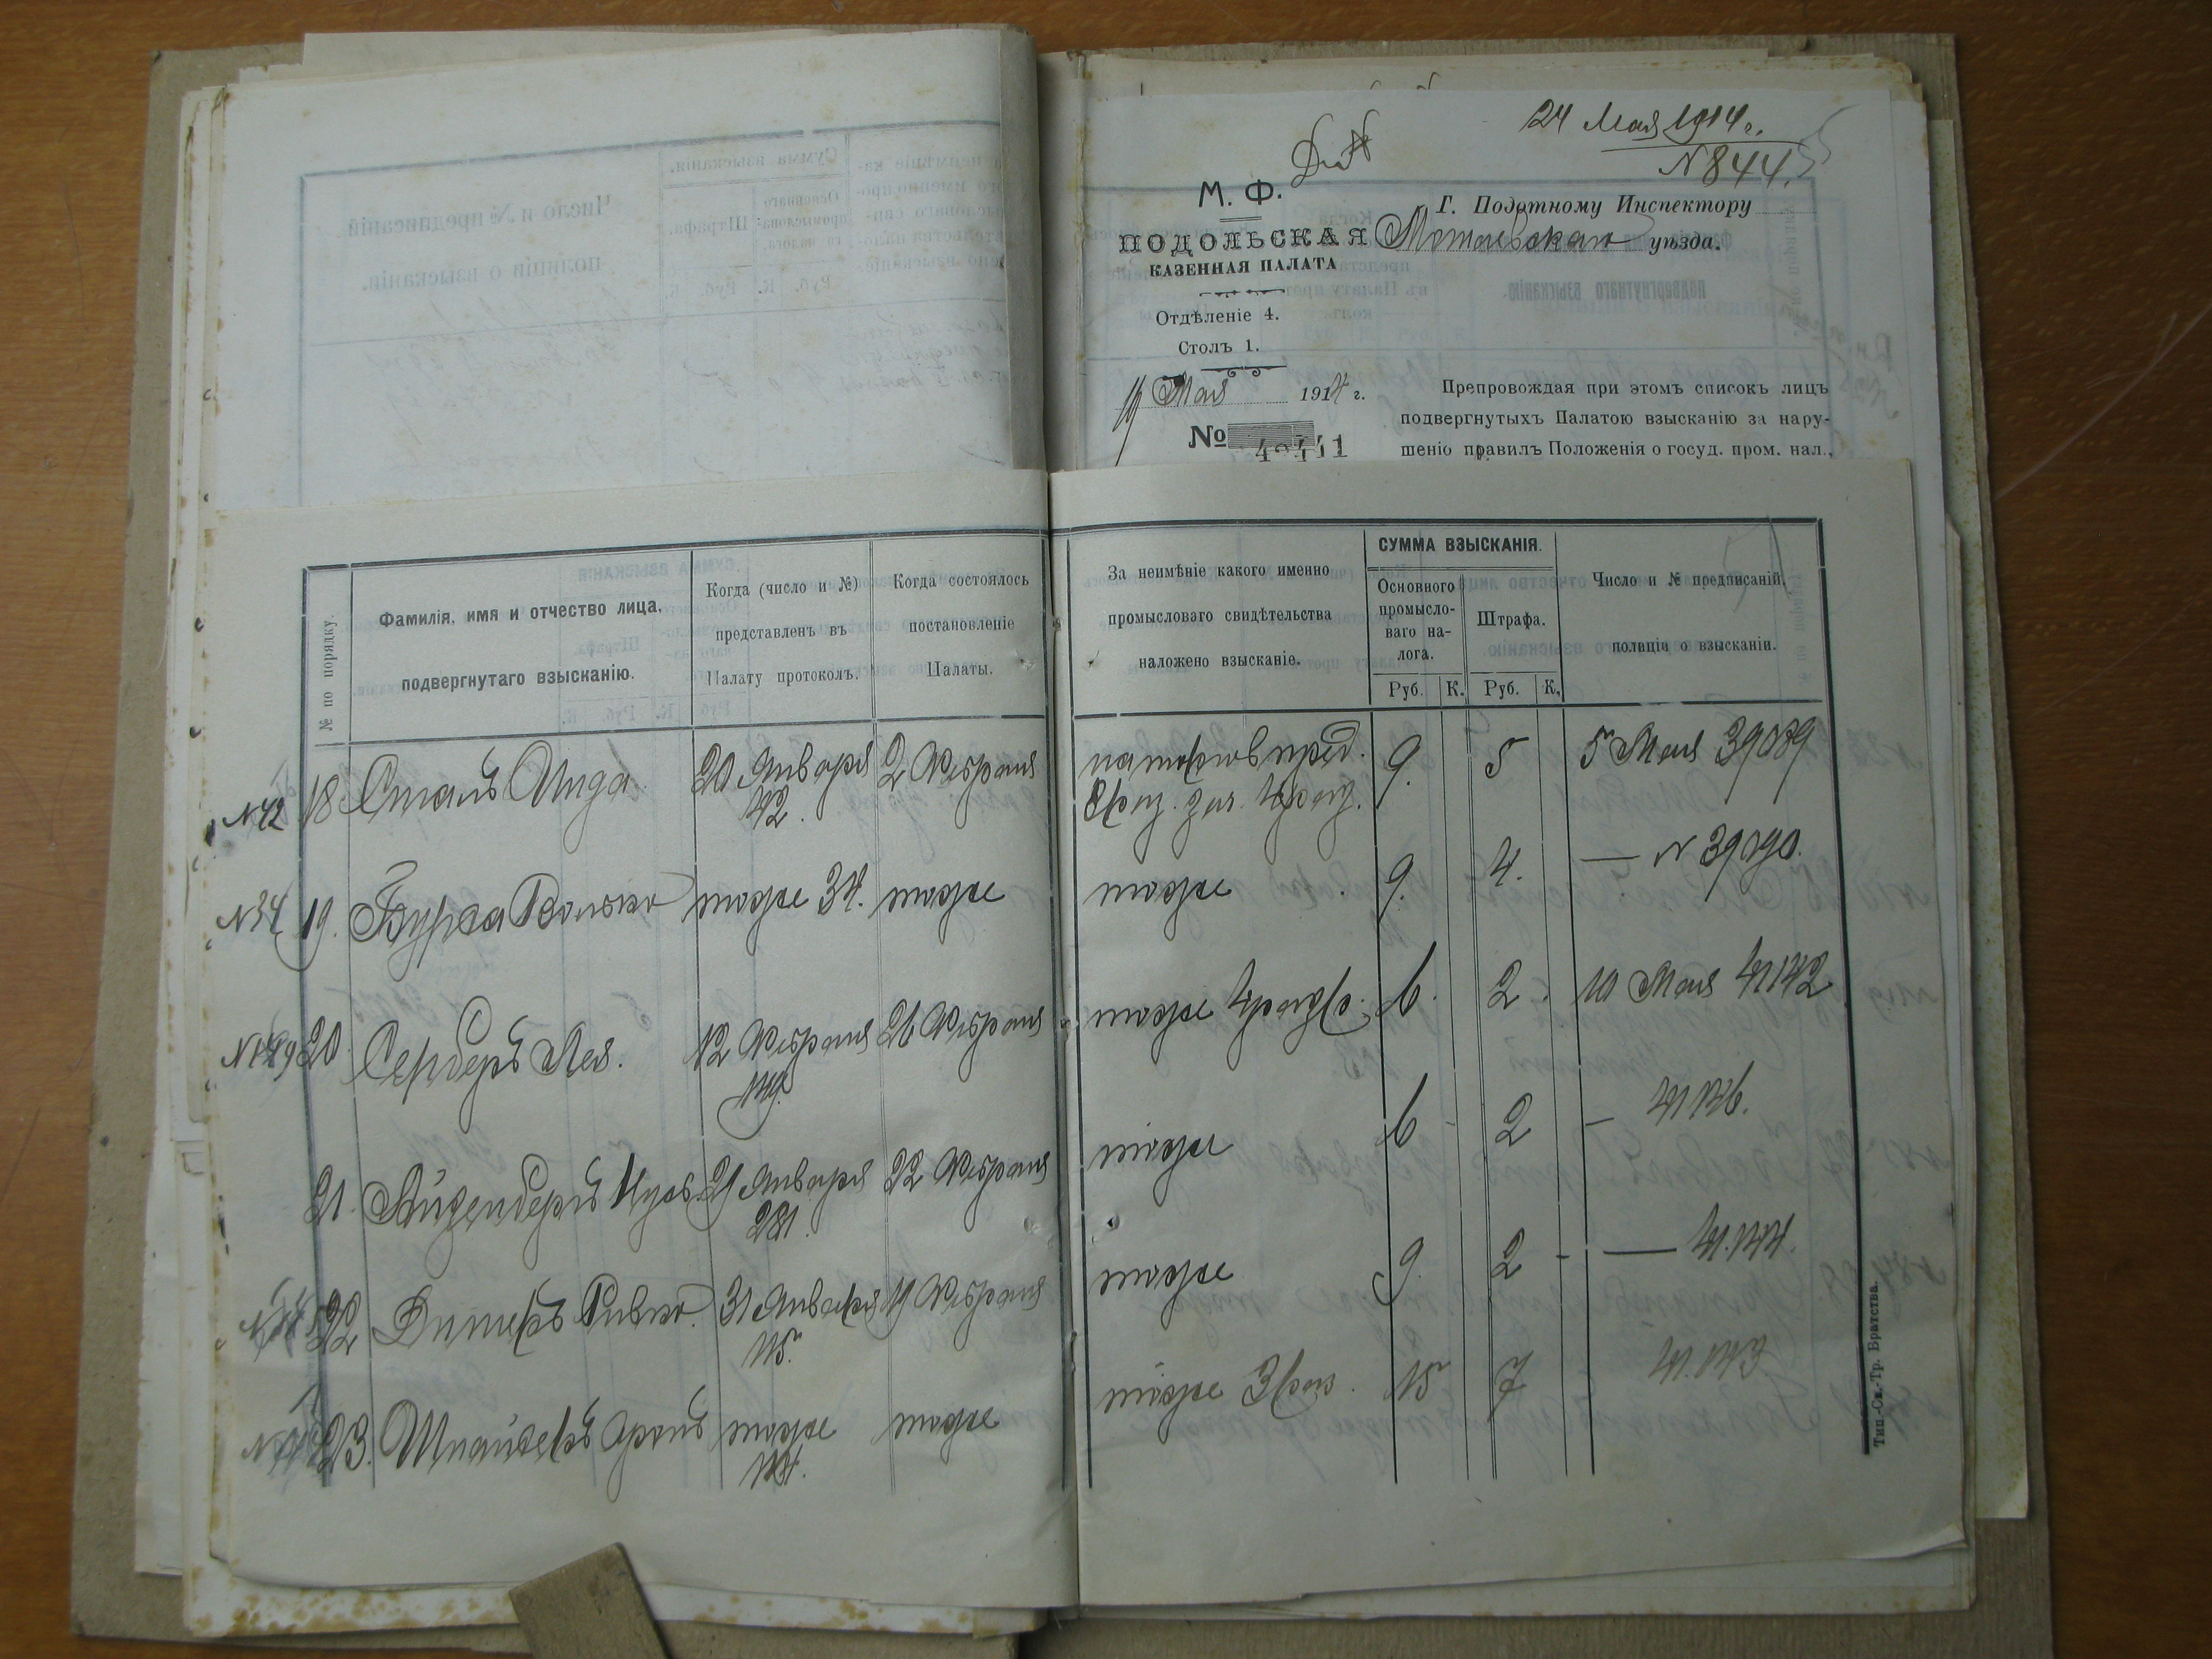 24 Мая 1914 г.
N 844.
М. Ф.
ПОДОЛЬСКАЯ
КАЗЕННАЯ ПАЛАТА
Отдѣленіе 4.
Столъ 1.
19 Мая 1914 г.
№ 40441
Г. Податному Инспектору
уѣзда.
Препровождая при этомъ списокъ лицъ
подвергнутыхъ Палатою взысканію за нару-
шеніе правилъ Положенія о госуд. пром. нал.,
№ по порядку.
Фамилія, имя и отчество лица,
подвергнутаго взысканію.
Когда (число и №)
представленъ въ
Палату протоколъ.
Когда состоялось
постановленіе
Палаты.
За неимѣніе какого именно
промысловаго свидѣтельства
наложено взысканіе.
СУММА ВЗЫСКАНІЯ.
Основного
промысло-
ваго на-
лога.
Штрафа.
Руб. К. Руб. К.
Число и № предписаній,
полиціи о взысканіи.
N42 18 Сталь Аида 20 Января 42. 2 Февраля 9. 5 5 Мая 39089
N34 19. Бурха Волько тоже 34. тоже тоже 9. 4. — N 39090.
N149 20 Серберъ Лея. 12 Февраля 149. 26 Февраля тоже 6. 2. 10 Мая 41142
21. Айзенбергъ 21 Января 281. 22 Февраля тоже 6 2 — 41146.
22 Ривка. 31 Января 115. 19 Февраля тоже 9. 2 — 41.144.
23. Шнайдеръ Аронъ тоже 114. тоже тоже 3 раз. 15 7 41.143
Тип.-Св.-Тр. Братства.